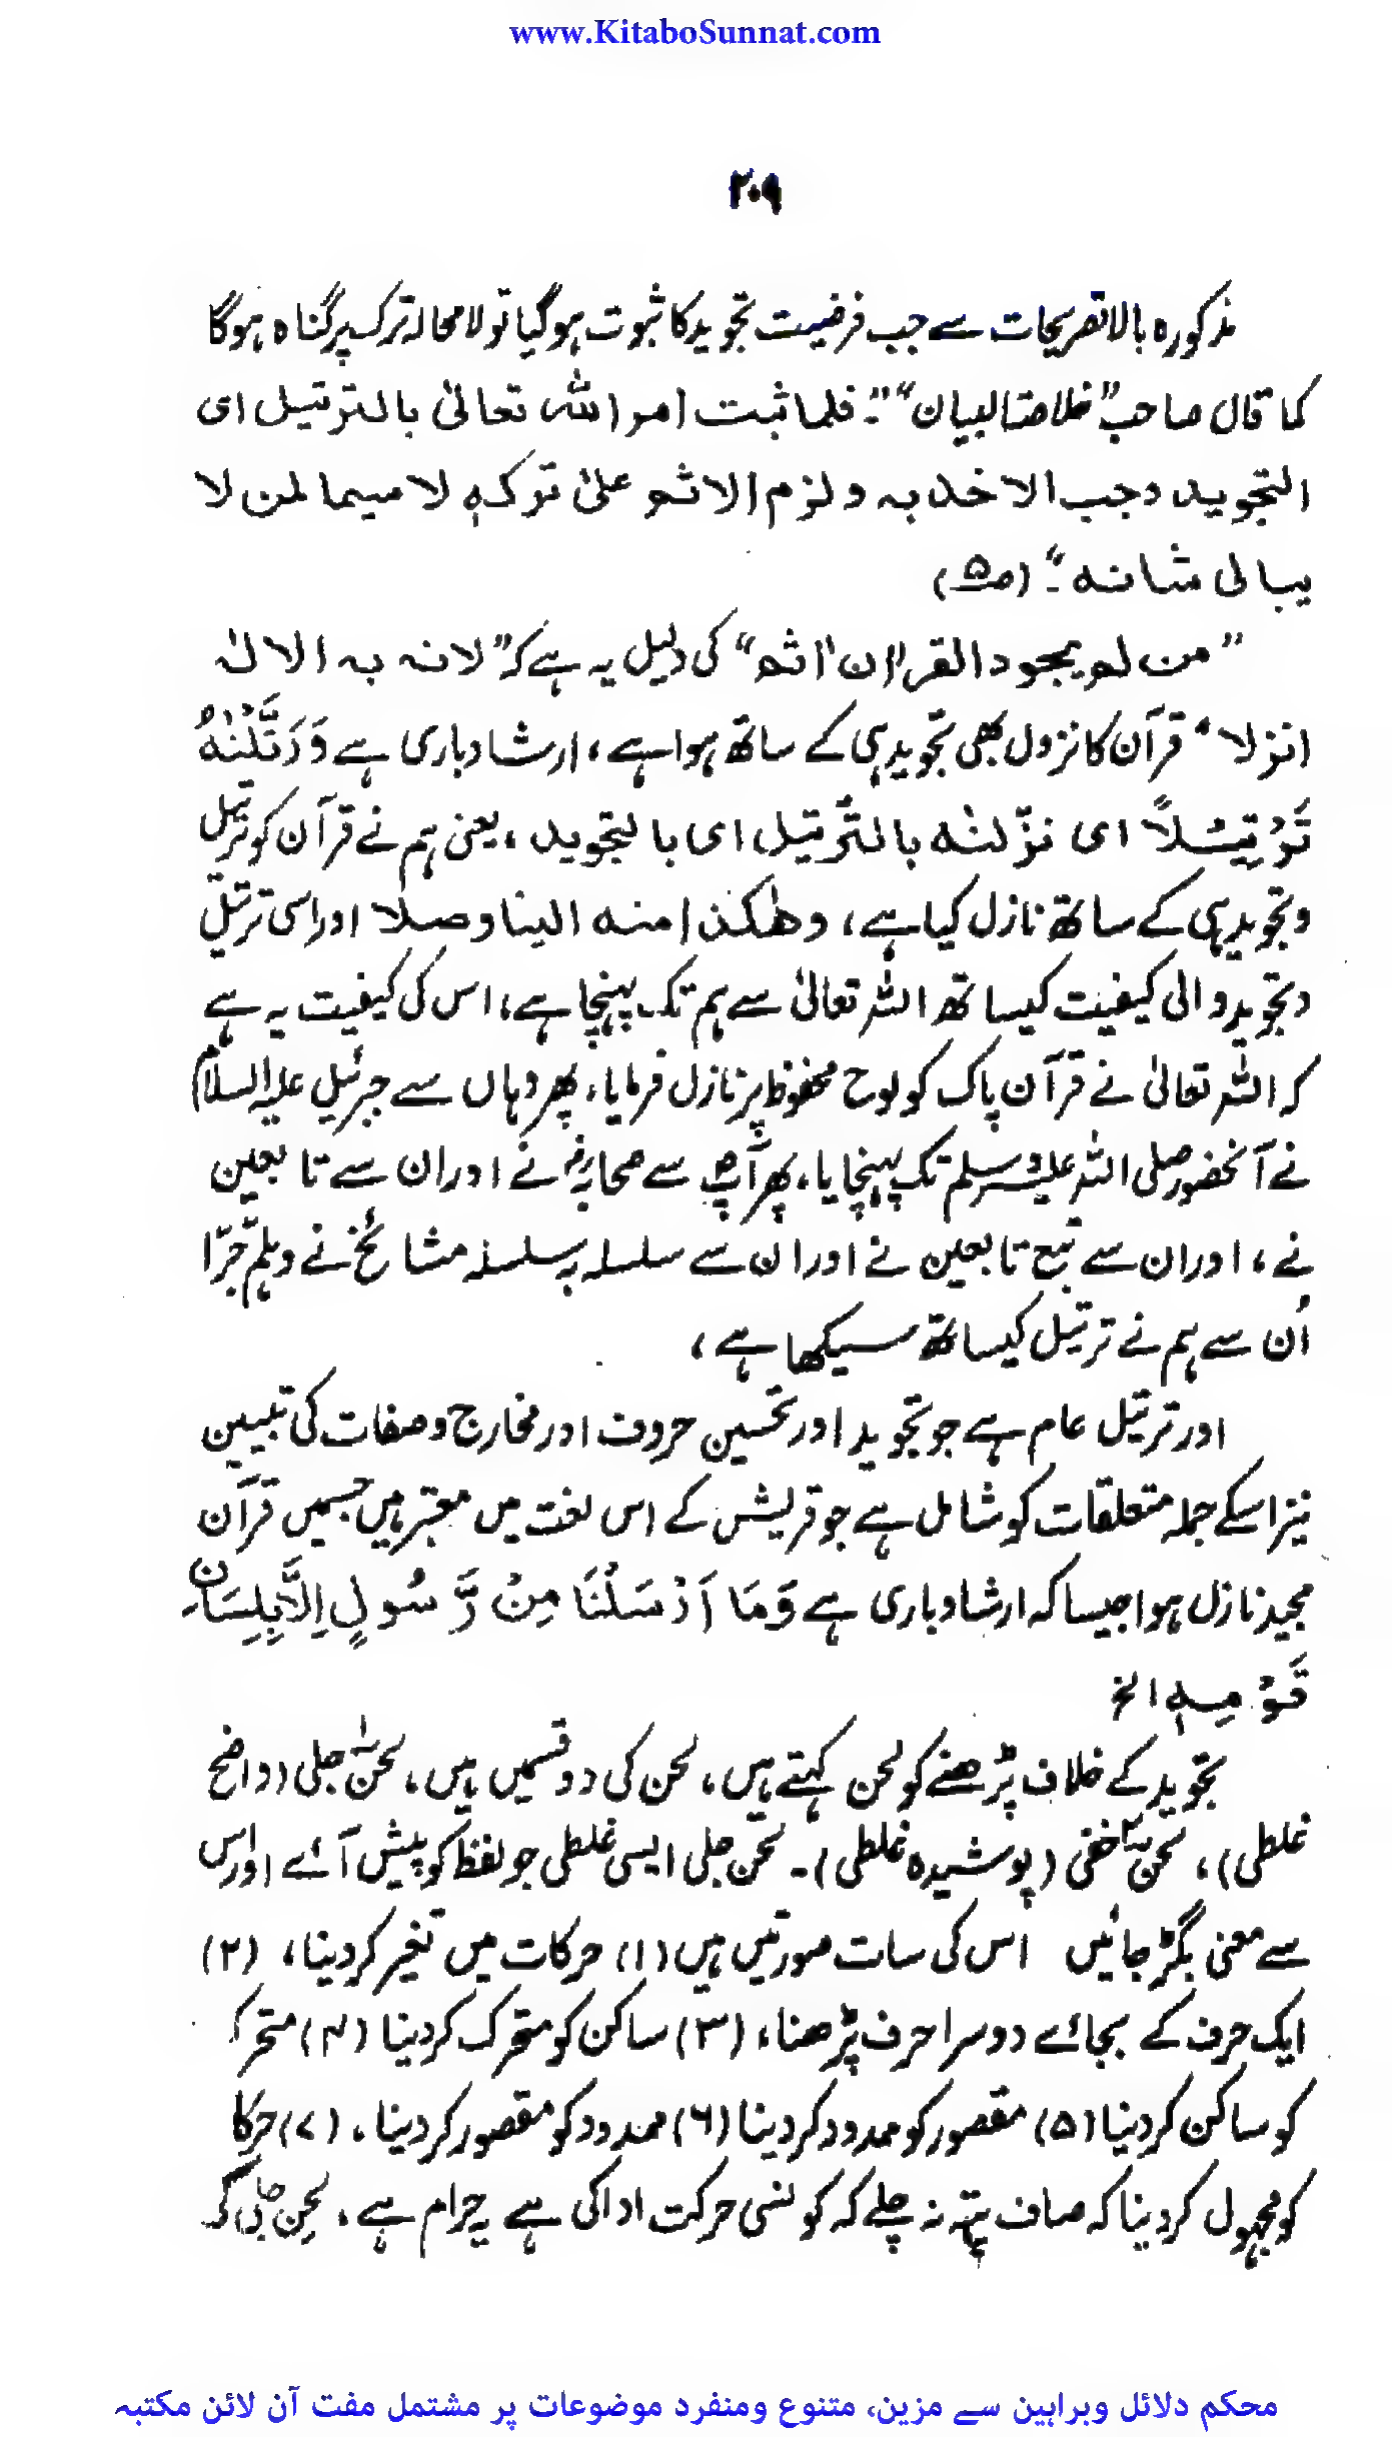 www.KitaboSunnat.com
۲۰۹
مذکورہ بالا تصریحات سے جب فرضیت تجوید کا ثبوت ہوگیا تو لامحالہ ترک پر گناہ ہوگا
کما قال صاحب "خلاصۃ البیان" :" فلما ثبت امر اللہ تعالیٰ بالترتیل ای
التجوید وجب الاخذ بہ ولزم الاثم علیٰ ترکہٖ لاسیما لمن لا
یبالی شانہ"۔ (ص۵)
"من لم یجود القراٰن اٰثم" کی دلیل یہ ہے کہ "لانہ بہ الالٰہ
انزلا" قرآن کا نزول بھی تجوید ہی کے ساتھ ہوا ہے، ارشاد باری ہے وَرَتَّلْنٰهُ
تَرْتِیْلاً ای نزّلنٰہ بالتَّرتیل ای بالتجوید، یعنی ہم نے قرآن کو ترتیل
وتجوید ہی کے ساتھ نازل کیا ہے، وھٰکذا منہ الینا وصلا اور اسی ترتیل
وتجوید والی کیفیت کیساتھ اللہ تعالیٰ سے ہم تک پہنچا ہے، اس کی کیفیت یہ ہے
کہ اللہ تعالیٰ نے قرآن پاک کو لوح محفوظ پر نازل فرمایا، پھر وہاں سے جبرئیل علیہ السلام
نے آنحضور صلی اللہ علیہ وسلم تک پہنچایا، پھر آپؐ سے صحابہؓ نے اور ان سے تابعین
نے، اور ان سے تبع تابعین نے اور ان سے سلسلہ بہ سلسلہ مشائخ نے وہلم جرّا
اُن سے ہم نے ترتیل کیساتھ سیکھا ہے،
اور ترتیل عام ہے جو تجوید اور تحسین حروف اور مخارج وصفات کی تبیین
نیز اسکے جملہ متعلقات کو شامل ہے جو قریش کے اس لغت میں معتبر ہیں جسمیں قرآن
مجید نازل ہوا جیسا کہ ارشاد باری ہے وَمَا اَرْسَلْنَا مِنْ رَّسُولٍ اِلَّا بِلِسَانِ
قَوْمِہٖ الخ
تجوید کے خلاف پڑھنے کو لحن کہتے ہیں، لحن کی دو قسمیں ہیں، لحن۱ جلی (واضح
غلطی)، لحن۲ خفی (پوشیدہ غلطی)۔ لحن جلی ایسی غلطی جو لفظ کو پیش آئے اور اس
سے معنی بگڑ جائیں اس کی سات صورتیں ہیں (۱) حرکات میں تغیر کر دینا، (۲)
ایک حرف کے بجائے دوسرا حرف پڑھنا، (۳) ساکن کو متحرک کر دینا (۴) متحرک
کو ساکن کر دینا (۵) مقصور کو ممدود کر دینا (۶) ممدود کو مقصور کر دینا، (۷) حرکا
کو مجہول کر دینا کہ صاف پتہ نہ چلے کہ کونسی حرکت ادا کی ہے یہ حرام ہے، لحن جلی
محکم دلائل وبراہین سے مزین، متنوع ومنفرد موضوعات پر مشتمل مفت آن لائن مکتبہ